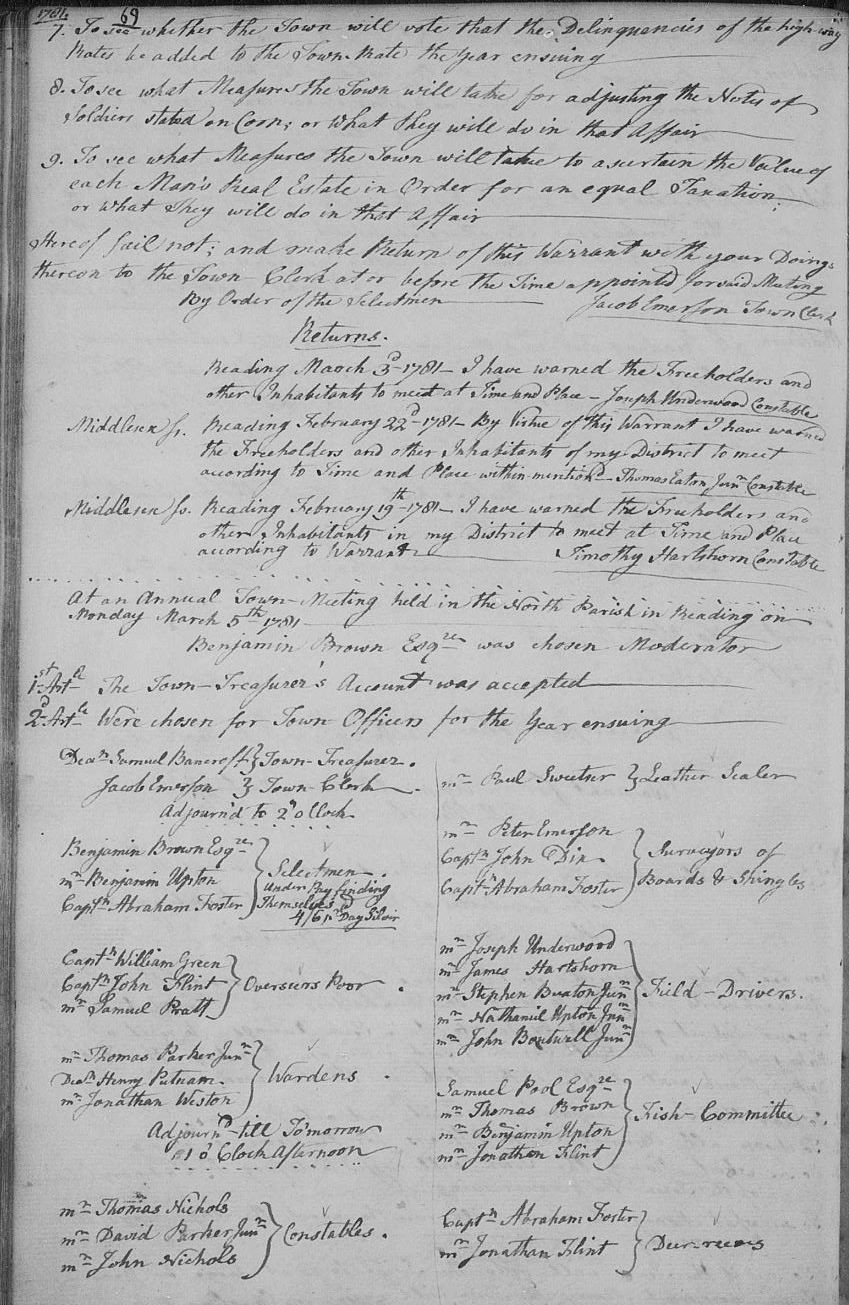 1781. 69
7. To see whether the Town will vote that the Delinquencies of the high-way
Rates be added to the Town-Rate the Year ensuing
8. To see what Measures the Town will take for adjusting the Notes of
Soldiers stated on Corn; or What They will do in that Affair
9. To see what Measures the Town will take to ascertain the Value of
each Man's Real Estate in Order for an equal Taxation;
or what They will do in that Affair
Hereof fail not; and make Return of this Warrant with your Doings
thereon to the Town-Clerk at or before the Time appointed for said Meeting
By Order of the Selectmen Jacob Emerson Town Clerk
Returns.
Reading March 3d 1781 - I have warned the Freeholders and
other Inhabitants to meet at Time and Place - Joseph Underwood Constable
Middlesex Ss. Reading February 22d 1781 - By Virtue of this Warrant I have warned
the Freeholders and other Inhabitants of my District to meet
according to Time and Place within-mention'd - Thomas Eaton Junr Constable
Middlesex Ss. Reading February 19th 1781 - I have warned the Freeholders and
other Inhabitants in my District to meet at Time and Place
according to Warrant - Timothy Hartshorn Constable
At an Annual Town-Meeting held in the North Parish in Reading on
Monday March 5th 1781
Benjamin Brown Esqre was chosen Moderator
1st Artle The Town-Treasurer's Account was accepted
2d Artle Were chosen for Town Officers for the Year ensuing
Deacn Samuel Bancroft } Town-Treasurer.
Jacob Emerson } Town-Clerk
Adjourn'd to 2 o Clock
Benjamin Brown Esqre
mr Benjamin Upton
Captn Abraham Foster
Selectmen.
Under Pay finding
Themselves
4/6 pr Day Silver
Captn William Green
Captn John Flint
mr Samuel Pratt
Overseers Poor.
mr Thomas Parker Junr
Deacn Henry Putnam.
mr Jonathan Weston
Wardens.
Adjournd till To'morrow
1 o' Clock Afternoon
mr Thomas Nichols
mr David Parker Junr
mr John Nichols
Constables.
mr Paul Sweetser } Leather Sealer
mr Peter Emerson
Captn John Dix.
Captn Abraham Foster
Surveyors of
Boards & Shingles
mr Joseph Underwood
mr James Hartshorn
mr Stephen Buxton Junr
mr Nathaniel Upton Junr
mr John Boutwell Junr
Field-Drivers.
Samuel Pool Esqre
mr Thomas Brown
mr Benjamin Upton
mr Jonathan Flint
Fish-Committee
Captn Abraham Foster
mr Jonathan Flint
Deer-reeves